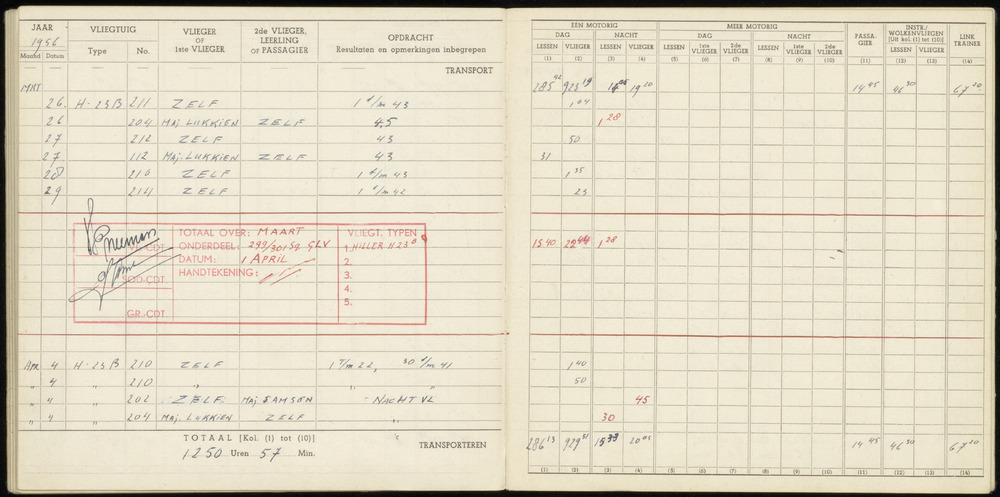 JAAR VLIEGTUIG VLIEGER OF 1ste VLIEGER 2de VLIEGER, LEERLING OF PASSAGIER OPDRACHT
1956
Maand Datum Type No. Resultaten en opmerkingen inbegrepen
TRANSPORT
MRT
26 H-23B 211 ZELF 1 t/m 43
26 204 Maj LUKKIEN ZELF 45
27 212 ZELF 43
27 112 Maj. LUKKIEN ZELF 43
28 210 ZELF 1 t/m 43
29 214 ZELF 1 t/m 42
TOTAAL OVER: MAART VLIEGT. TYPEN
ONDERDEEL: 299/301 Sq. GLV 1. HILLER H23B
DATUM: 1 APRIL 2.
HANDTEKENING: 3.
4.
5.
GR.-CDT
APR 4 H-23B 210 ZELF 1 T/m 22, 30 t/m 41
" 4 " 210 " " "
" 4 " 202 ZELF Maj SAMSON NACHT VL
" 4 " 204 Maj. LUKKIEN ZELF "
TOTAAL [Kol. (1) tot (10)]
1250 Uren 57 Min.
TRANSPORTEREN
EEN MOTORIG MEER MOTORIG PASSA-GIER INSTR./ WOLKENVLIEGEN [Uit kol. (1) tot (10)] LINK TRAINER
DAG NACHT DAG NACHT
LESSEN VLIEGER LESSEN VLIEGER LESSEN 1ste VLIEGER 2de VLIEGER LESSEN 1ste VLIEGER 2de VLIEGER LESSEN VLIEGER
(1) (2) (3) (4) (5) (6) (7) (8) (9) (10) (11) (12) (13) (14)
285 42 923 19 19 20 14 45 46 30 67 20
1 04
1 28
50
31
1 35
23
15 40 1 28
1 40
50
45
30
286 13 929 51 20 05 14 45 46 30 67 20
(1) (2) (3) (4) (5) (6) (7) (8) (9) (10) (11) (12) (13) (14)